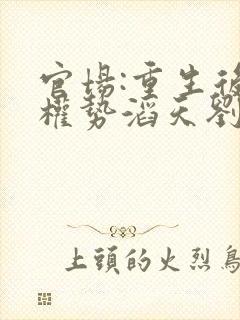 官場:重生後
權勢滔天劉
上頭的火烈鳥